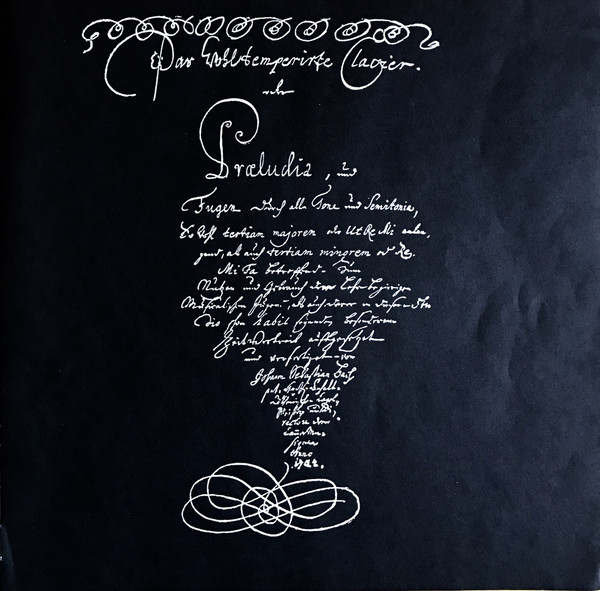 Das Wohltemperirte Clavier.
oder
Præludia, und
Fugen durch alle Tone und Semitonia,
So wohl tertiam majorem oder Ut Re Mi anlan-
gend, als auch tertiam minorem oder Re
Mi Fa betreffend. Zum
Nutzen und Gebrauch der Lehrbegierigen
Musicalischen Jugend, als auch derer in diesem stu-
dio schon habil seyenden besonderem
Zeit Vertreib auffgesetzet
und verfertiget von
Johann Sebastian Bach
p. t.
Anno
1722.